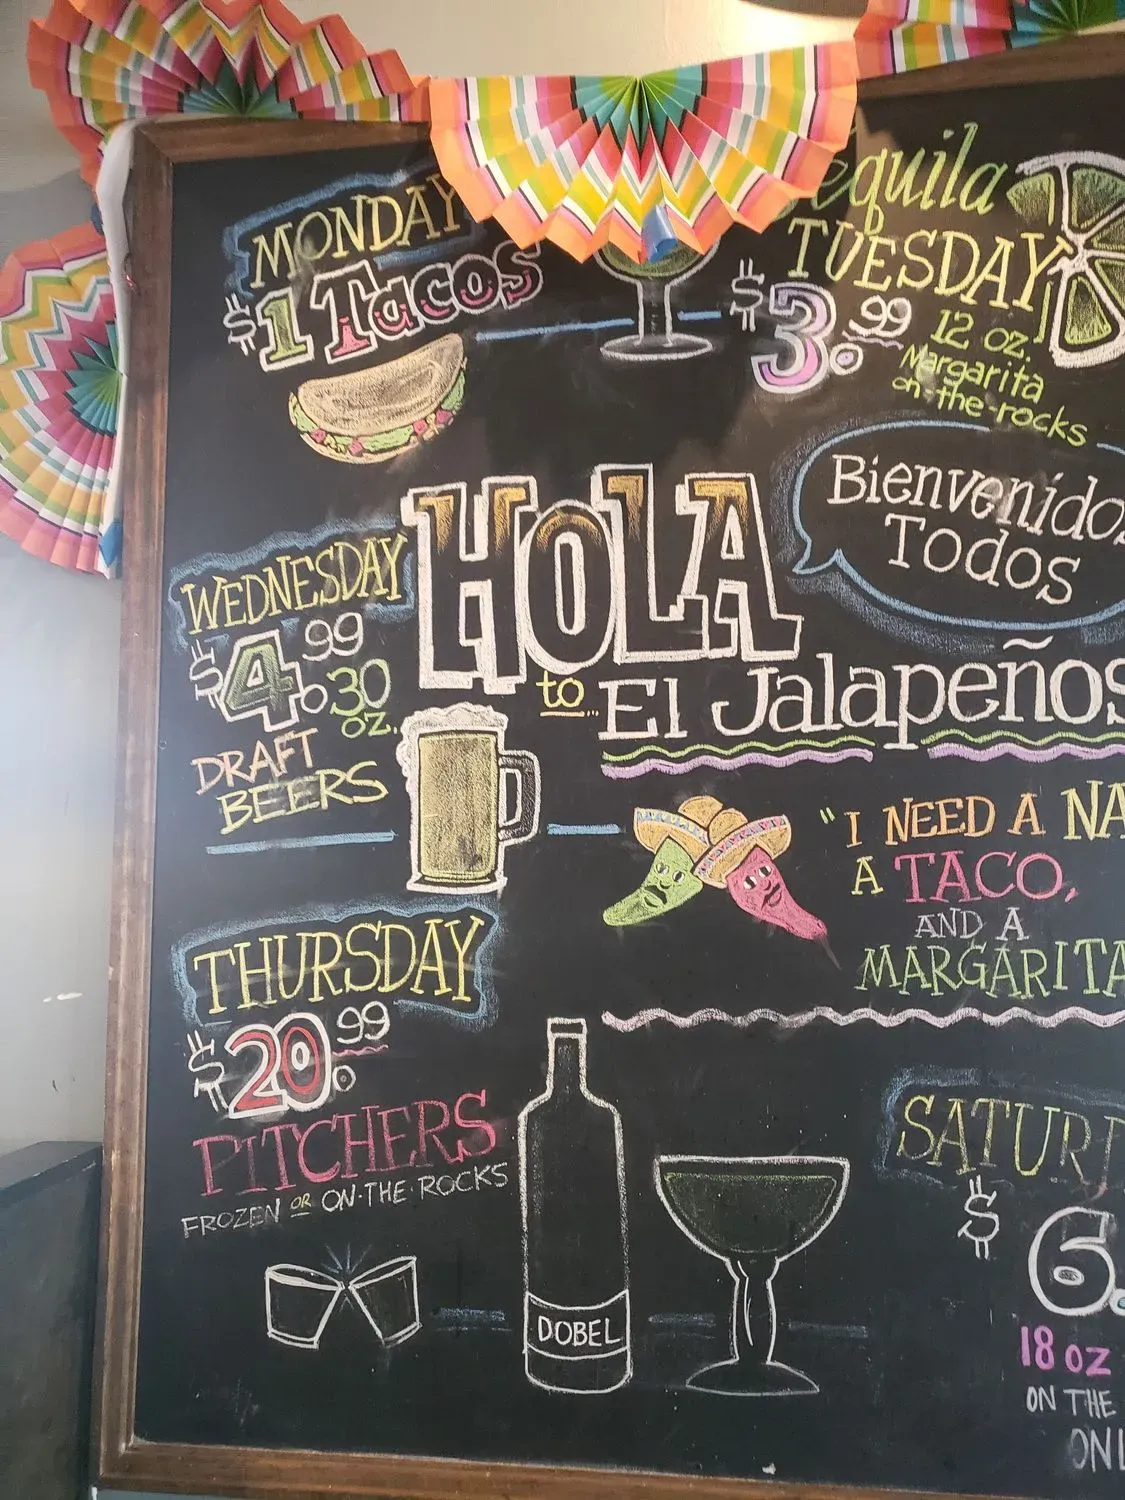 MONDAY
$1 Tacos
equila
TUESDAY
$3.99
12 oz.
Margarita
on-the-rocks
Bienvenidos
Todos
HOLA
to El Jalapeños
WEDNESDAY
$4.99
30
oz.
DRAFT
BEERS
"I NEED A NA
A TACO,
AND A
MARGARITA
THURSDAY
$20.99
PITCHERS
FROZEN OR ON·THE·ROCKS
DOBEL
SATURD
$6.
18 oz
ON THE
ONL